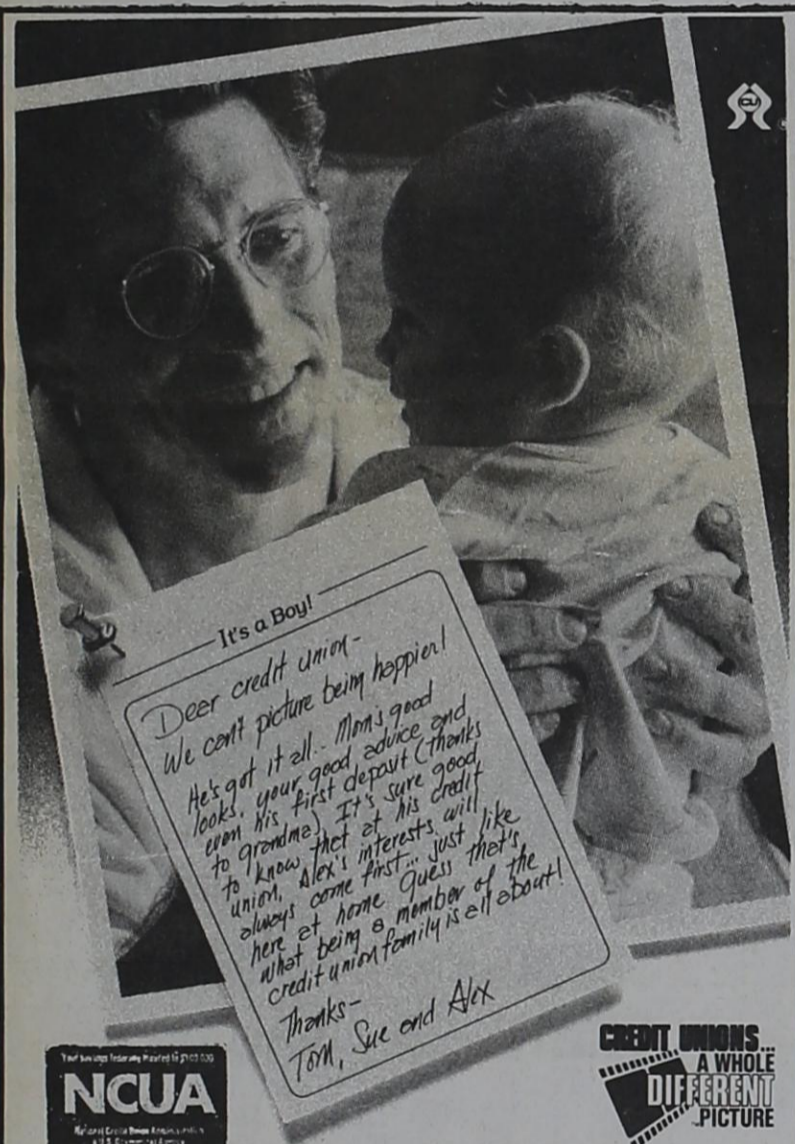 CU
It's a Boy!
Dear credit union-
We can't picture being happier!
He's got it all.. Mom's good
looks, your good advice and
even his first deposit (thanks
to grandma). It's sure good
to know that at his credit
union, Alex's interests will
always come first... just like
here at home. Guess that's
what being a member of the
credit union family is all about!
Thanks-
Tom, Sue and Alex
Your savings federally insured to $100,000
NCUA
National Credit Union Administration
a U.S. Government Agency
CREDIT UNIONS...
A WHOLE
DIFFERENT
PICTURE